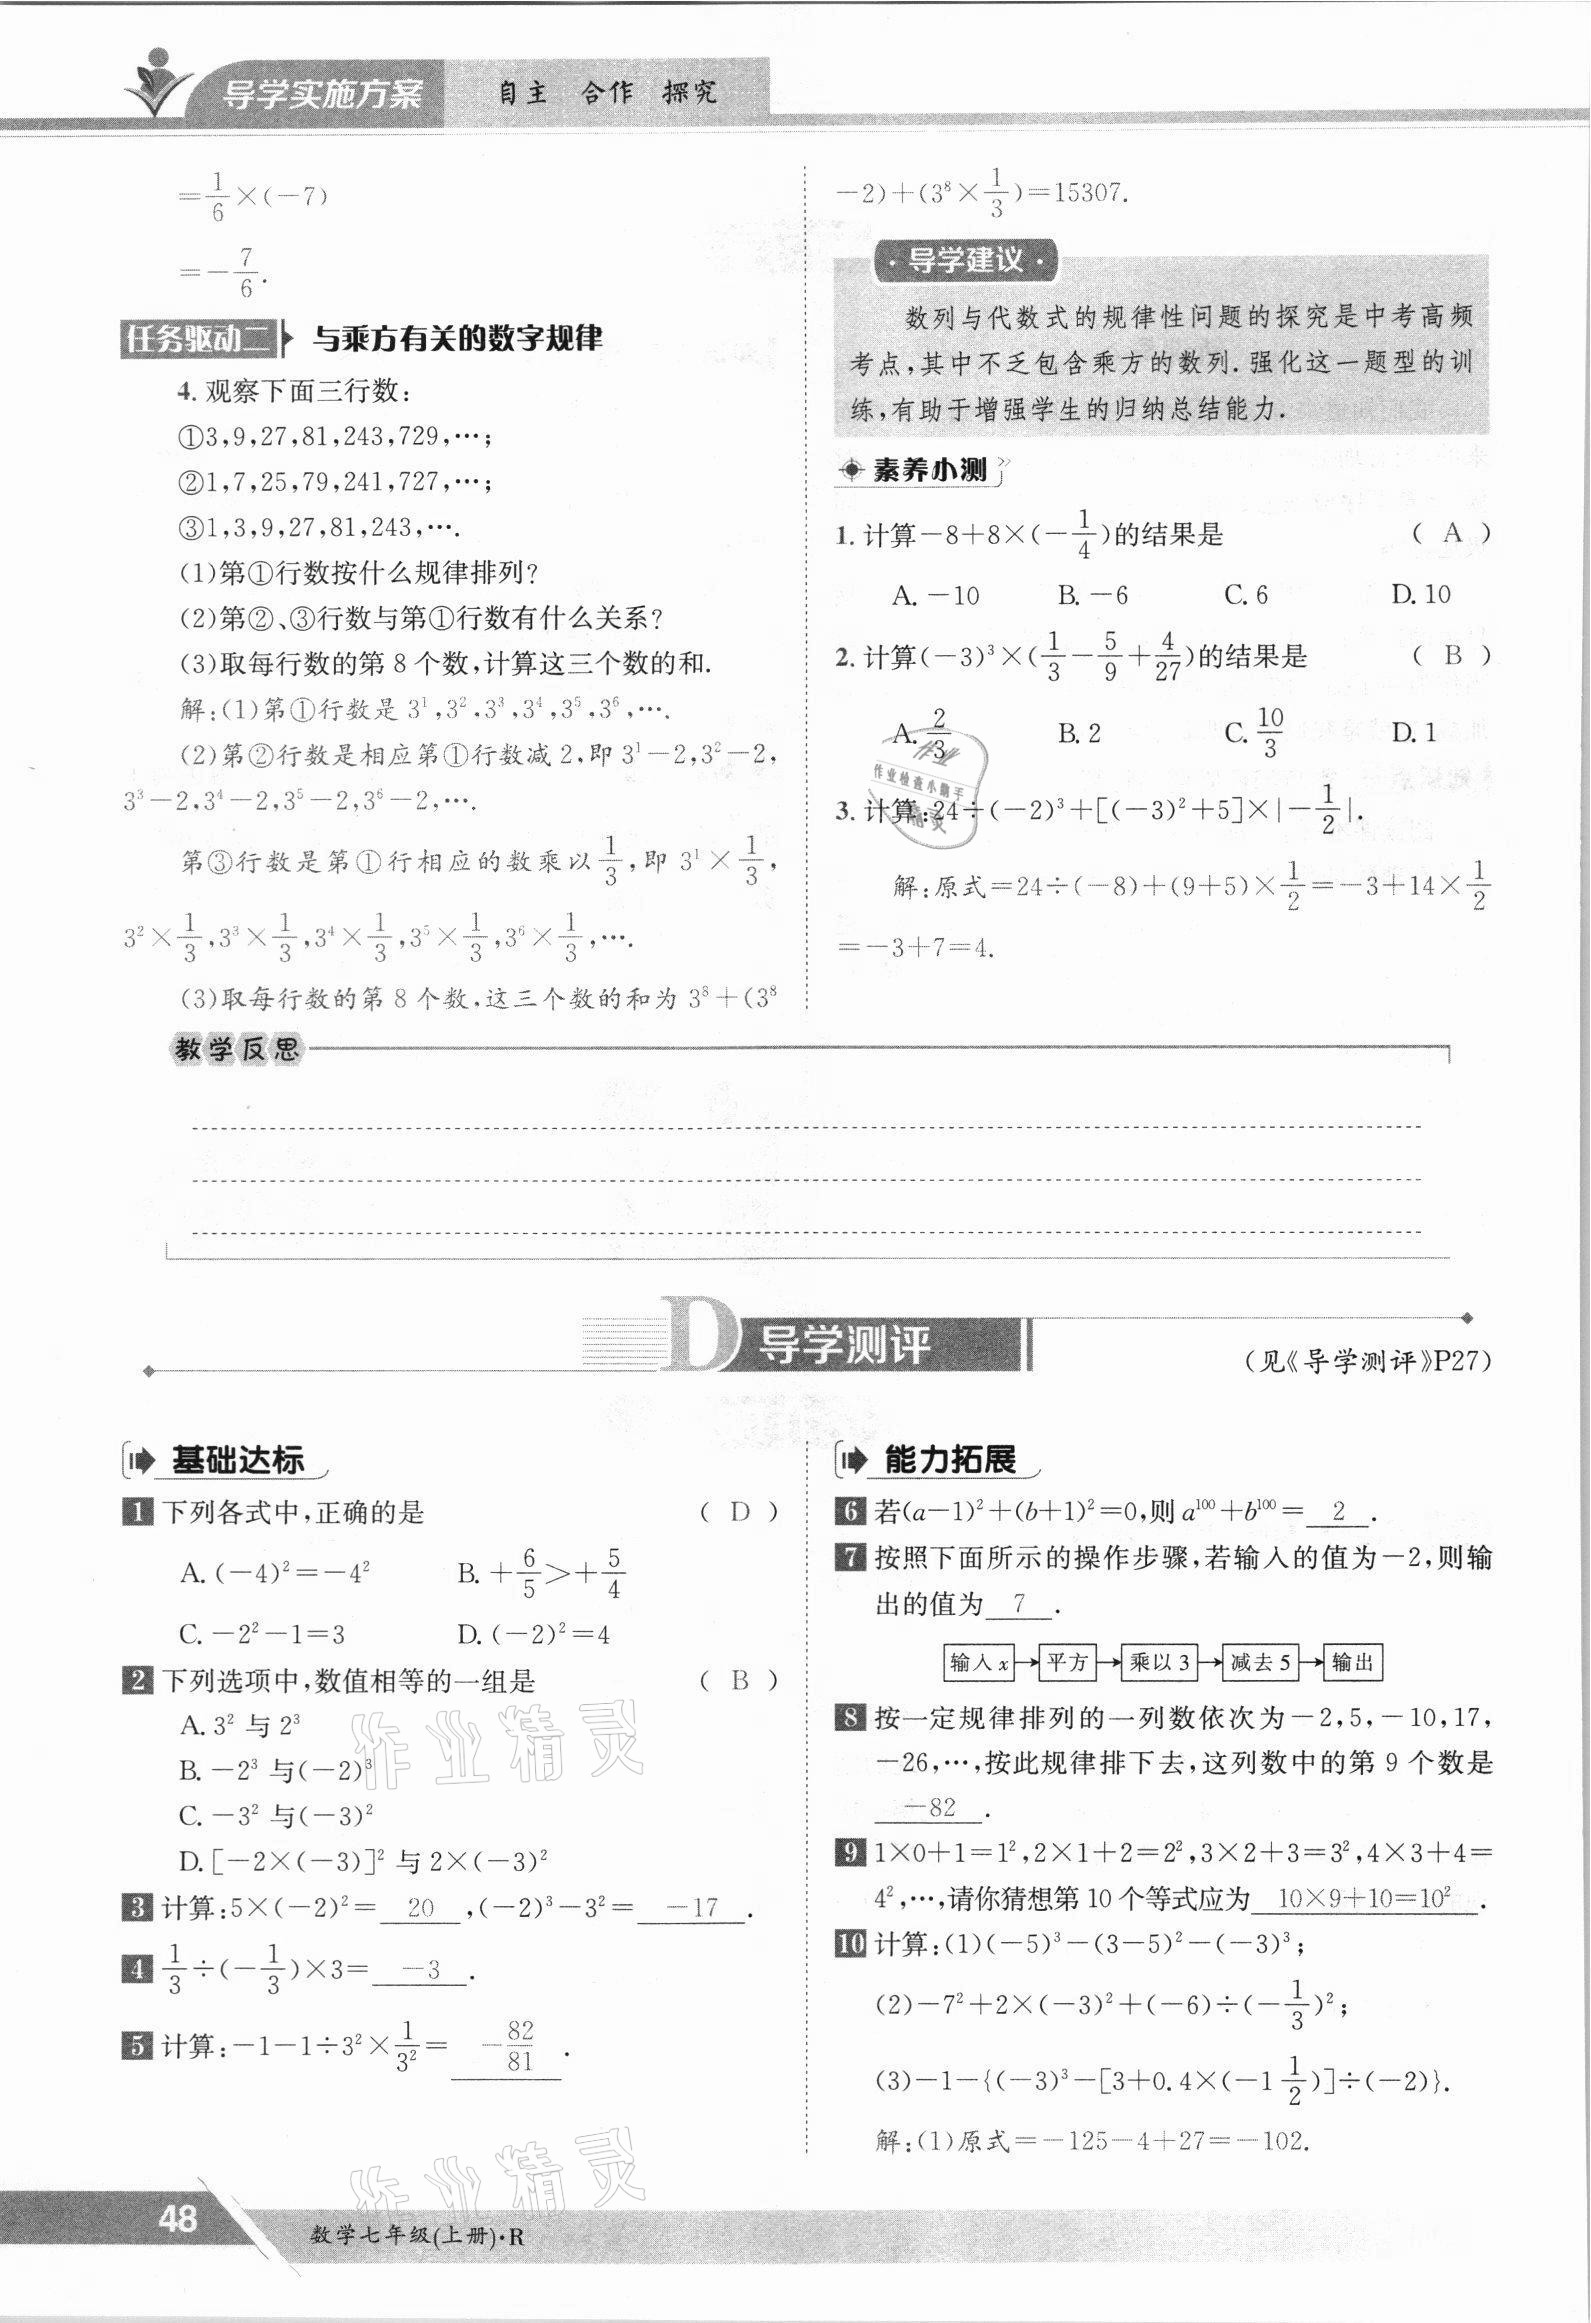 导学实施方案 自主 合作 探究
=1/6×(-7)
=-7/6.
任务驱动二 与乘方有关的数字规律
4. 观察下面三行数:
①3,9,27,81,243,729,…;
②1,7,25,79,241,727,…;
③1,3,9,27,81,243,….
(1)第①行数按什么规律排列?
(2)第②、③行数与第①行数有什么关系?
(3)取每行数的第 8 个数,计算这三个数的和.
解:(1)第①行数是 3¹,3²,3³,3⁴,3⁵,3⁶,….
(2)第②行数是相应第①行数减 2,即 3¹-2,3²-2,
3³-2,3⁴-2,3⁵-2,3⁶-2,….
第③行数是第①行相应的数乘以 1/3,即 3¹×1/3,
3²×1/3,3³×1/3,3⁴×1/3,3⁵×1/3,3⁶×1/3,….
(3)取每行数的第 8 个数,这三个数的和为 3⁸+(3⁸
-2)+(3⁸×1/3)=15307.
·导学建议·
数列与代数式的规律性问题的探究是中考高频
考点,其中不乏包含乘方的数列.强化这一题型的训
练,有助于增强学生的归纳总结能力.
素养小测
1. 计算-8+8×(-1/4)的结果是 ( A )
A. -10 B. -6 C. 6 D. 10
2. 计算(-3)³×(1/3-5/9+4/27)的结果是 ( B )
A. 2/3 B. 2 C. 10/3 D. 1
3. 计算:24÷(-2)³+[(-3)²+5]×|-1/2|.
解:原式=24÷(-8)+(9+5)×1/2=-3+14×1/2
=-3+7=4.
作业
作业检查小助手
精灵
教学反思
D 导学测评
(见《导学测评》P27)
基础达标
1 下列各式中,正确的是 ( D )
A. (-4)²=-4² B. +6/5>+5/4
C. -2²-1=3 D. (-2)²=4
2 下列选项中,数值相等的一组是 ( B )
A. 3² 与 2³
B. -2³ 与(-2)³
C. -3² 与(-3)²
D. [-2×(-3)]² 与 2×(-3)²
3 计算:5×(-2)²= 20 ,(-2)³-3²= -17 .
4 1/3÷(-1/3)×3= -3 .
5 计算:-1-1÷3²×1/3²= -82/81 .
能力拓展
6 若(a-1)²+(b+1)²=0,则 a¹⁰⁰+b¹⁰⁰= 2 .
7 按照下面所示的操作步骤,若输入的值为-2,则输
出的值为 7 .
输入 x → 平方 → 乘以 3 → 减去 5 → 输出
8 按一定规律排列的一列数依次为-2,5,-10,17,
-26,…,按此规律排下去,这列数中的第 9 个数是
-82 .
9 1×0+1=1²,2×1+2=2²,3×2+3=3²,4×3+4=
4²,…,请你猜想第 10 个等式应为 10×9+10=10² .
10 计算:(1)(-5)³-(3-5)²-(-3)³;
(2)-7²+2×(-3)²+(-6)÷(-1/3)²;
(3)-1-{(-3)³-[3+0.4×(-1 1/2)]÷(-2)}.
解:(1)原式=-125-4+27=-102.
作业精灵
作业精灵
48 数学七年级(上册)·R